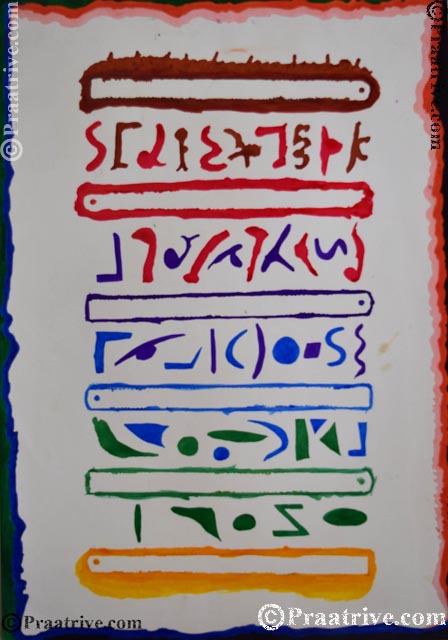 ©Praatrive.com
©Praatrive.com
©Praatrive.com
©Praatrive.com